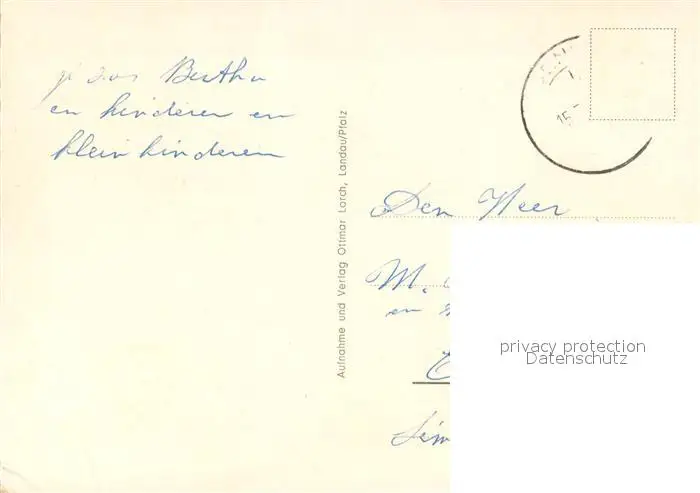 Bertha
en kinderen en
kleinkinderen
Aufnahme und Verlag Ottmar Lorch, Landau/Pfalz
Den Heer
M.
en
privacy protection
Datenschutz